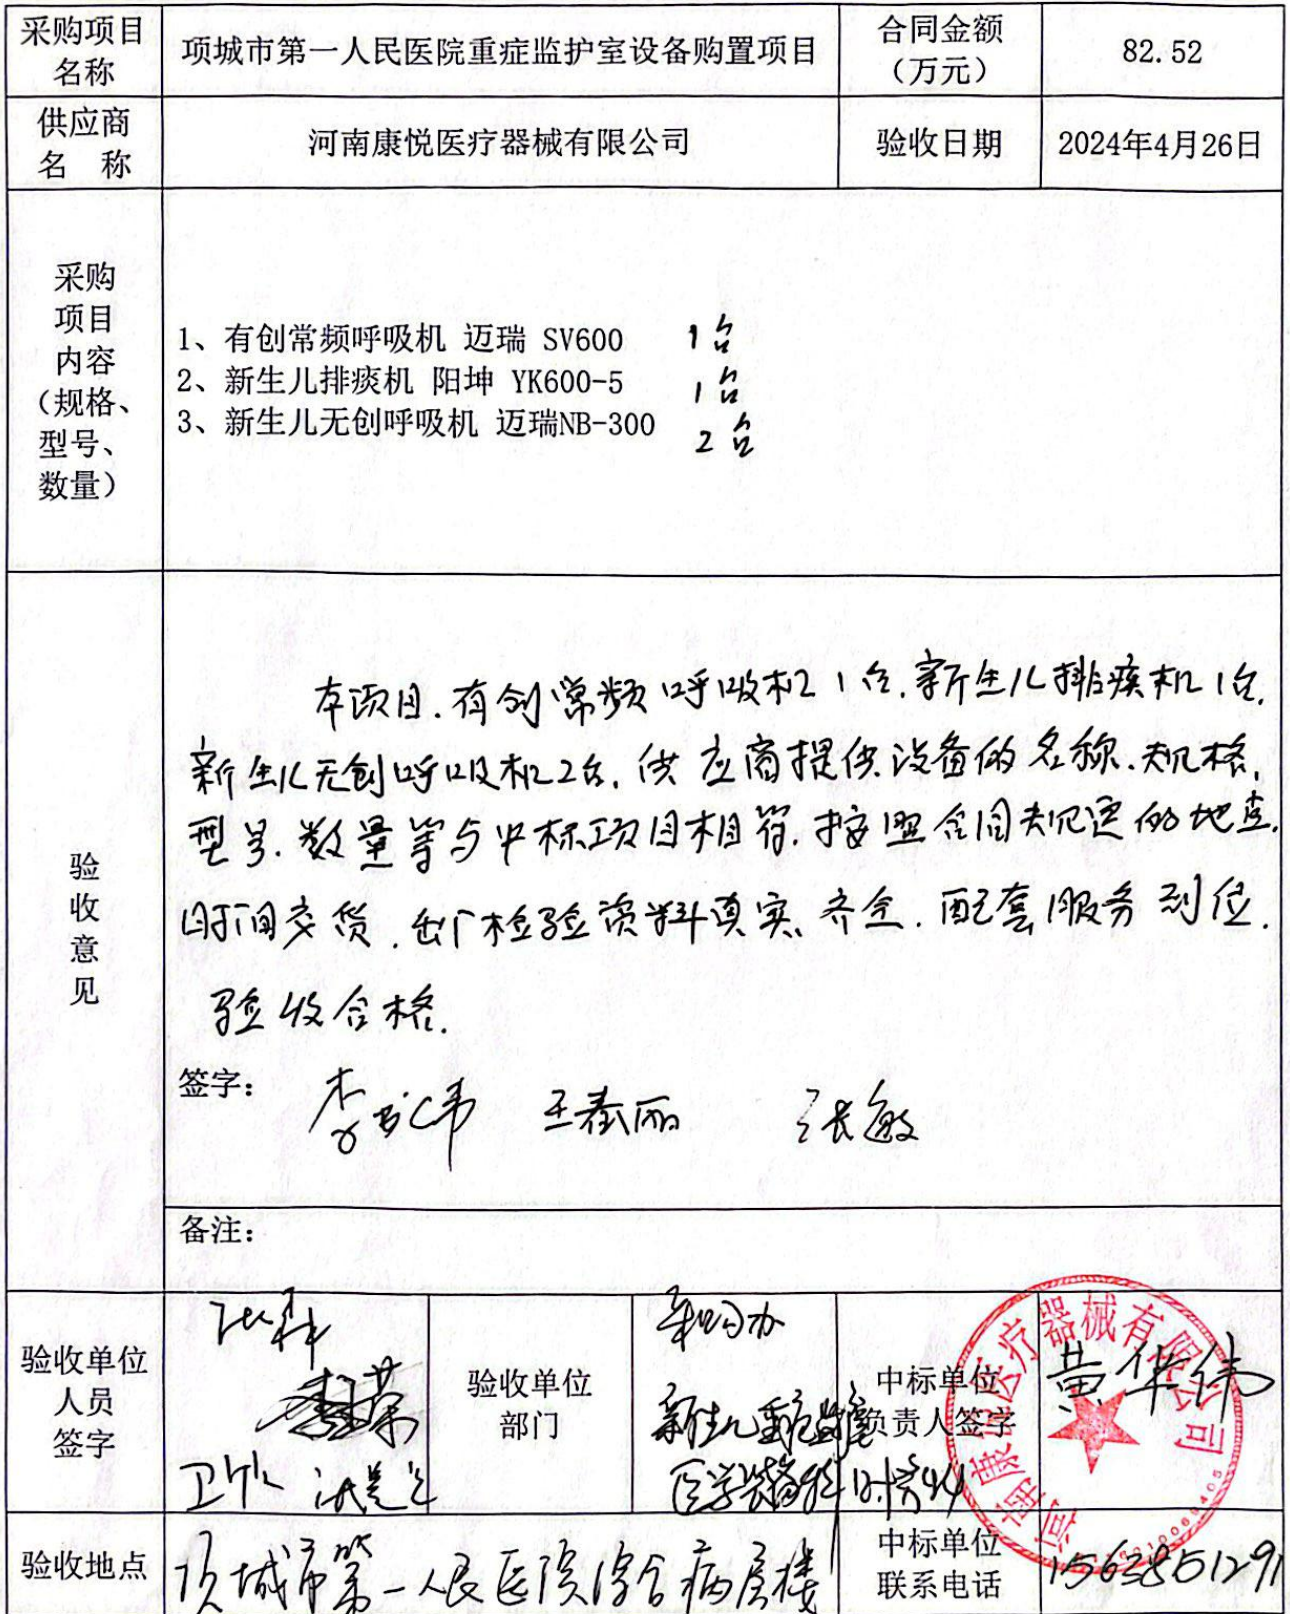 采购项目名称 项城市第一人民医院重症监护室设备购置项目 合同金额（万元） 82.52
供应商名 称 河南康悦医疗器械有限公司 验收日期 2024年4月26日
采购
项目
内容
（规格、
型号、
数量）
1、有创常频呼吸机 迈瑞 SV600 1台
2、新生儿排痰机 阳坤 YK600-5 1台
3、新生儿无创呼吸机 迈瑞NB-300 2台
验收意见
本项目.有创常频呼吸机1台.新生儿排痰机1台.
新生儿无创呼吸机2台.供应商提供设备的名称.规格.
型号.数量等与中标项目相符.按照合同规定的地点.
时间交货.出厂检验资料真实、齐全.配套服务到位.
验收合格.
签字： 王春丽 张敏
备注：
验收单位
人员
签字
验收单位
部门
采购办
新生儿重症监护室
医学装备科
中标单位
负责人签字
黄华伟
河南康悦医疗器械有限公司
验收地点 项城市第一人民医院综合病房楼
中标单位
联系电话
15638851291